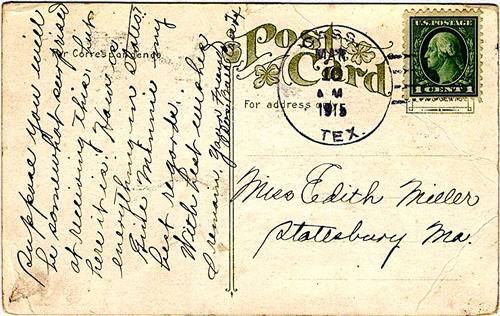 Post Card
For address only
U.S. POSTAGE
1 CENT 1
MAR
10
A M
1915
TEX.
Suppose you will
be somewhat surprised
at receiving this. but
here it is. How is
everything in
Give Minnie my
best regards.
With best wishes
I remain, your friend
Miss Edith Miller
Statesbury Mo.